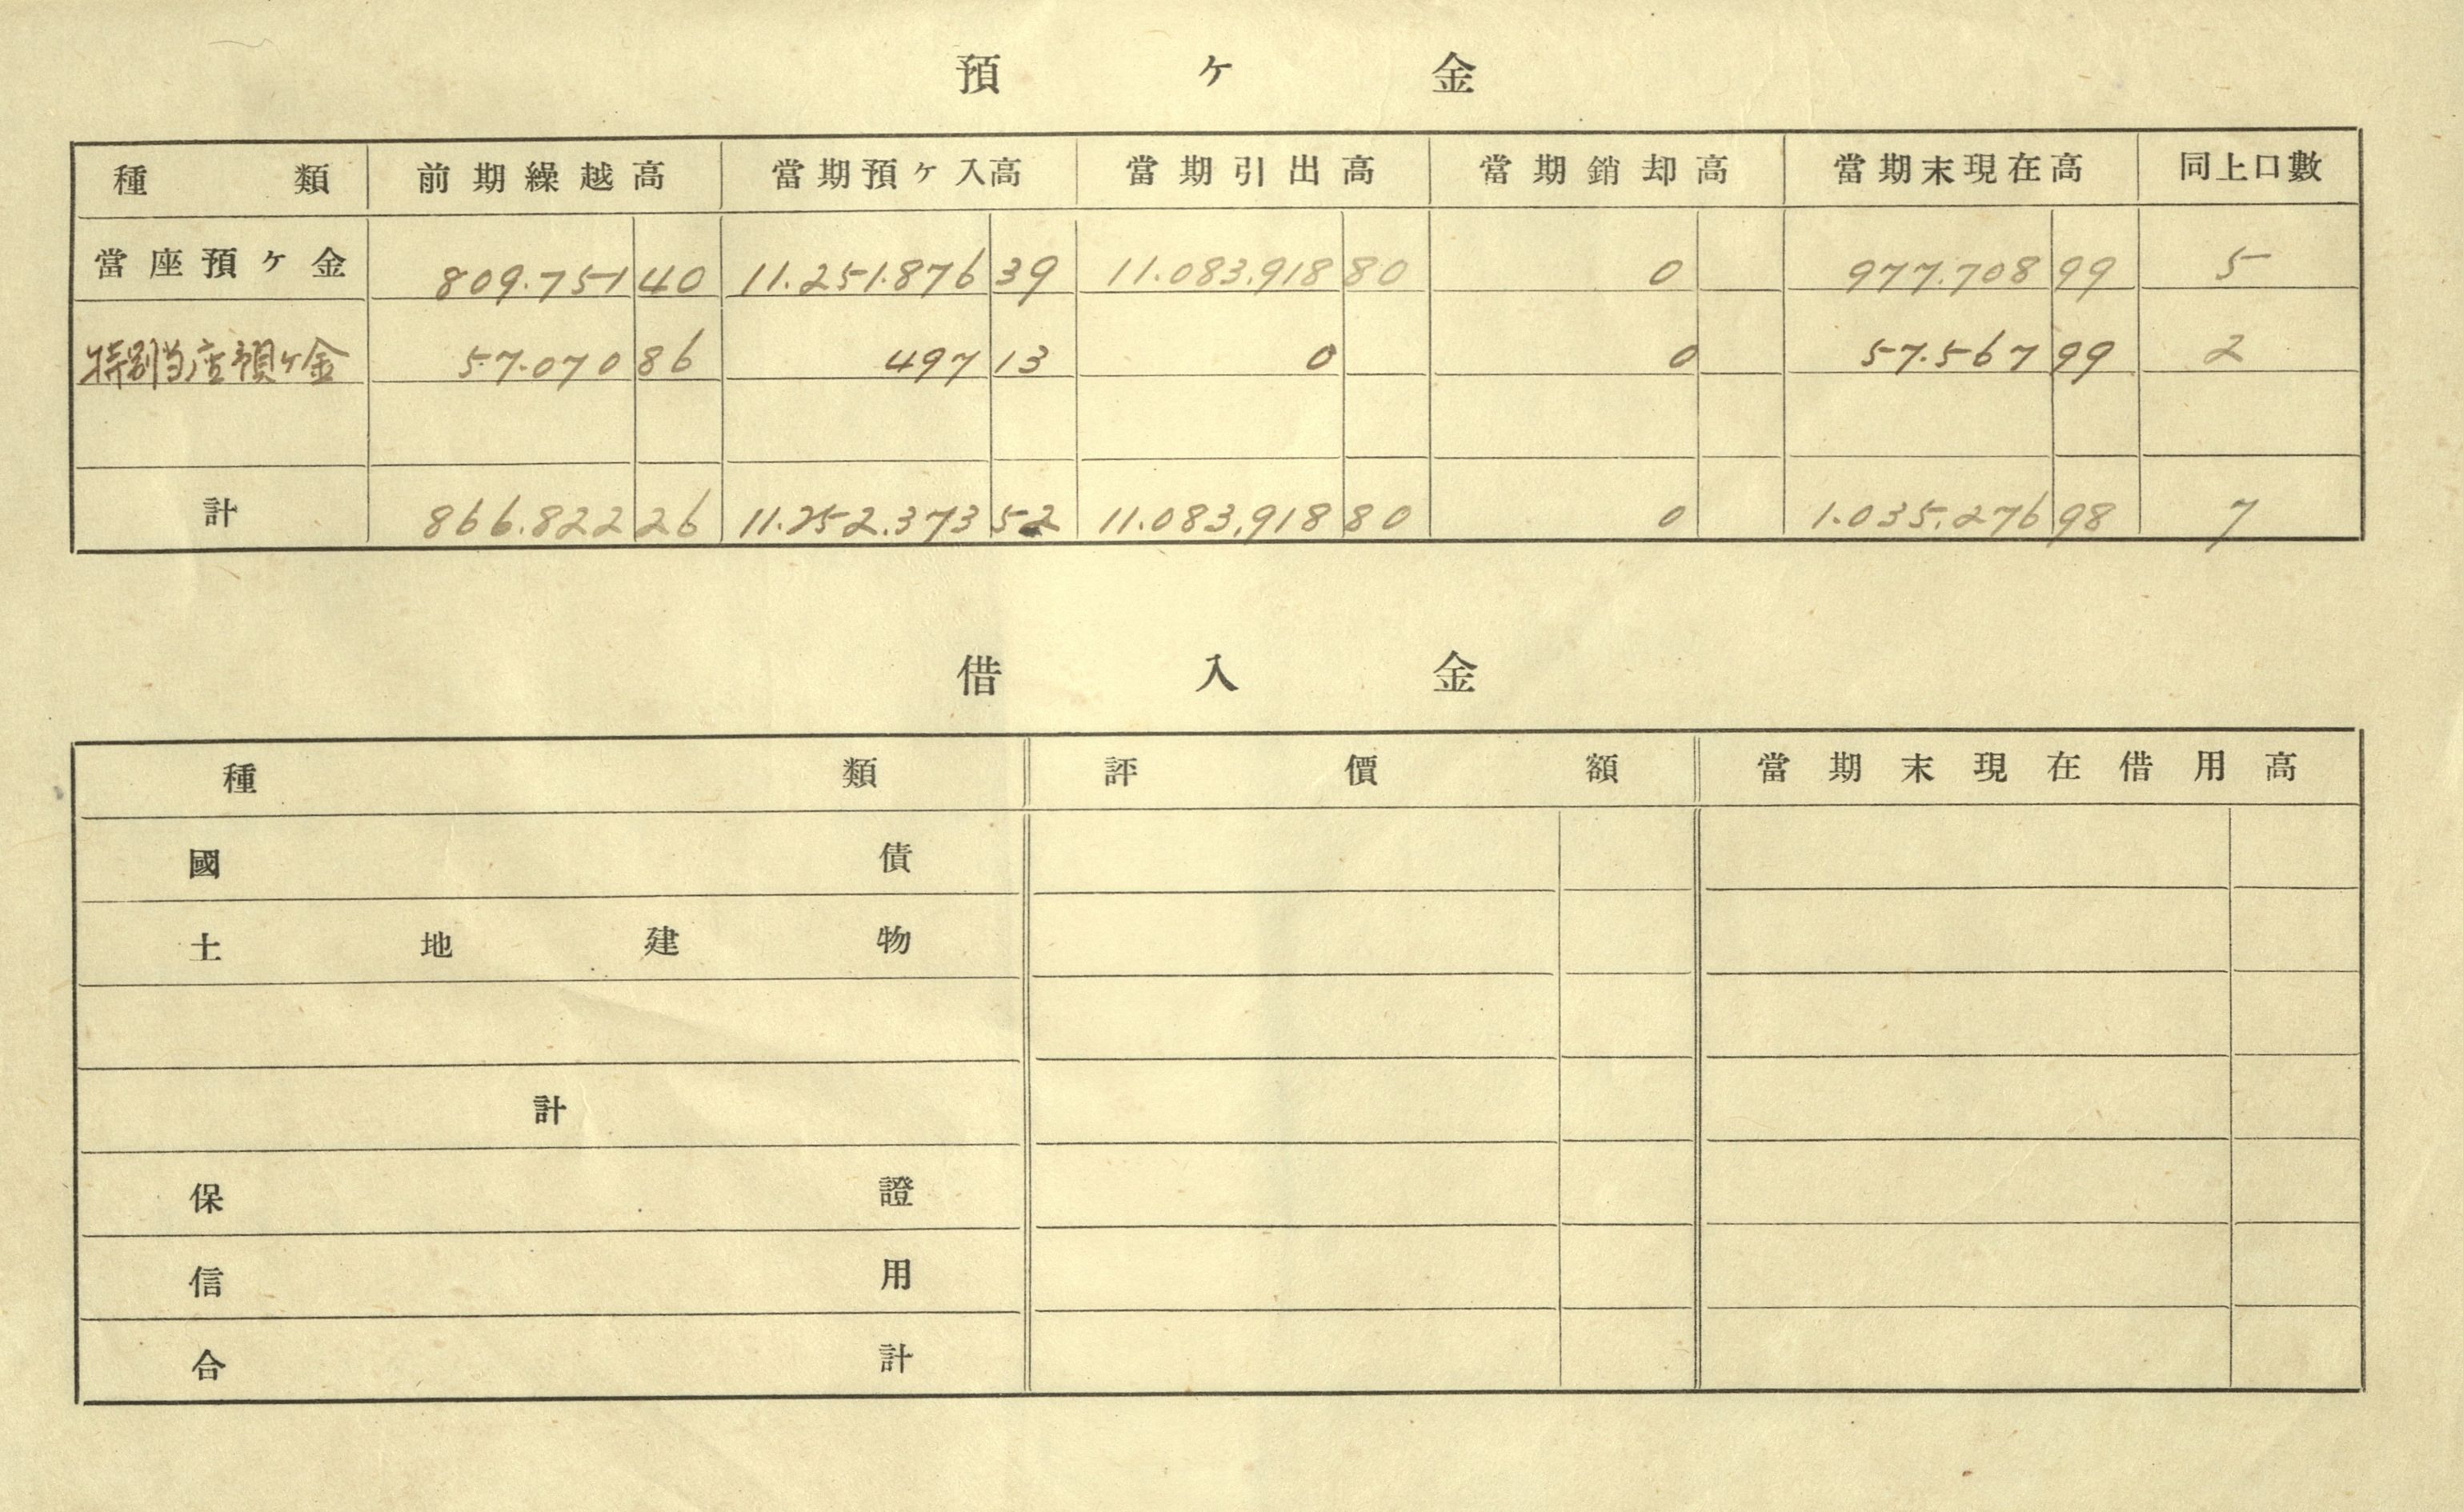 預ヶ金
種類 前期繰越高 當期預ヶ入高 當期引出高 當期銷却高 當期末現在高 同上口數
當座預ヶ金 809.751 40 11.251.876 39 11.083.918 80 0 977.708 99 5
特別当座預ヶ金 57.070 86 497 13 0 0 57.567 99 2
計 866.822 26 11.252.373 52 11.083.918 80 0 1.035.276 98 7
借入金
種類 評價額 當期末現在借用高
國債
土地建物
計
保證
信用
合計